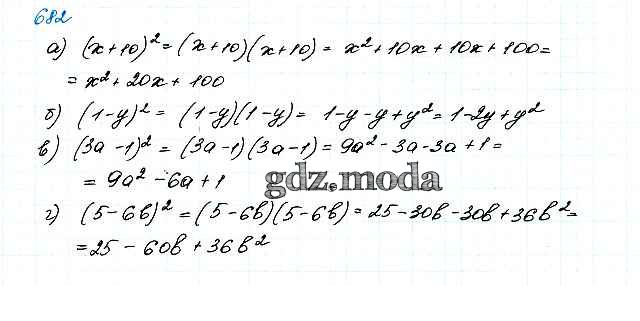 682
а) (x+10)² = (x+10)(x+10) = x² + 10x + 10x + 100 =
= x² + 20x + 100
б) (1-y)² = (1-y)(1-y) = 1-y-y+y² = 1-2y+y²
в) (3a-1)² = (3a-1)(3a-1) = 9a² - 3a - 3a + 1 =
= 9a² - 6a + 1
gdz.moda
г) (5-6b)² = (5-6b)(5-6b) = 25 - 30b - 30b + 36b² =
= 25 - 60b + 36b²